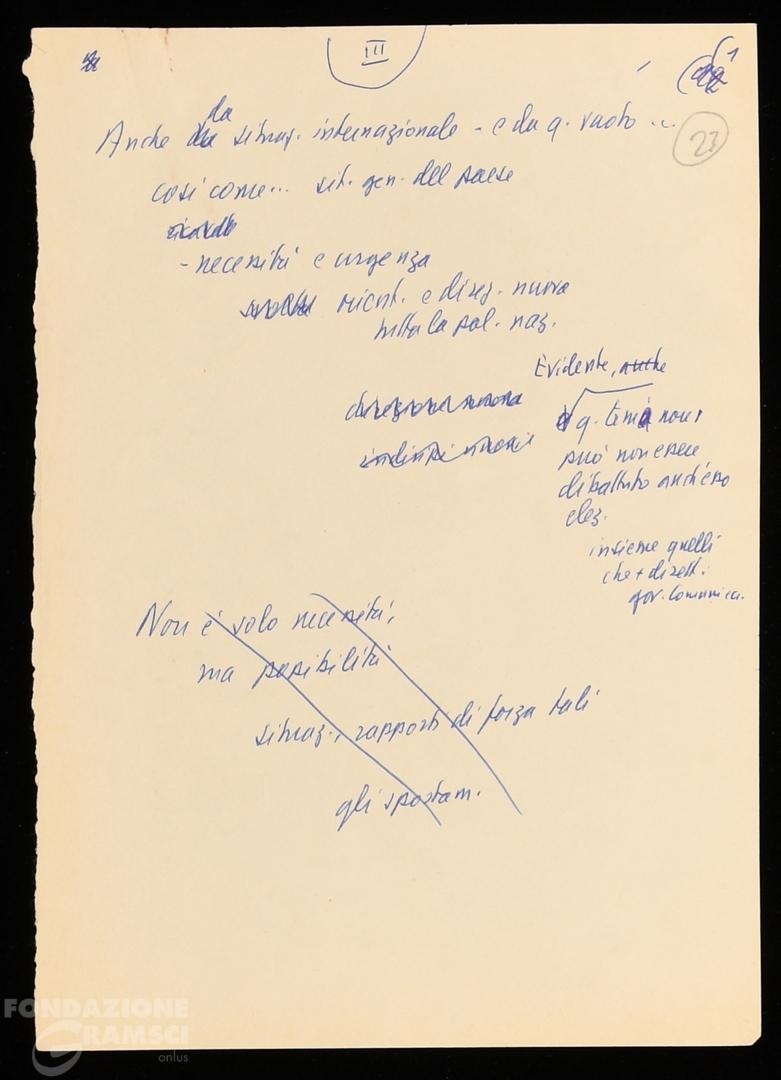 III
23
Anche da situaz. internazionale - e da q. vuoto ...
così come... sit. gen. del paese
- necessità e urgenza
ricost. e direz. nuova
tutta la pol. naz.
Evidente, anche
q. temi non
può non essere
dibattuto anch'esso
elez.
insieme quelli
che + dirett.
gov. Comunica.
direzione nuova
indirizzi nuovi
Non è solo necessità,
ma possibilità
situaz., rapporti di forza tali
gli spostam.
FONDAZIONE
GRAMSCI
onlus